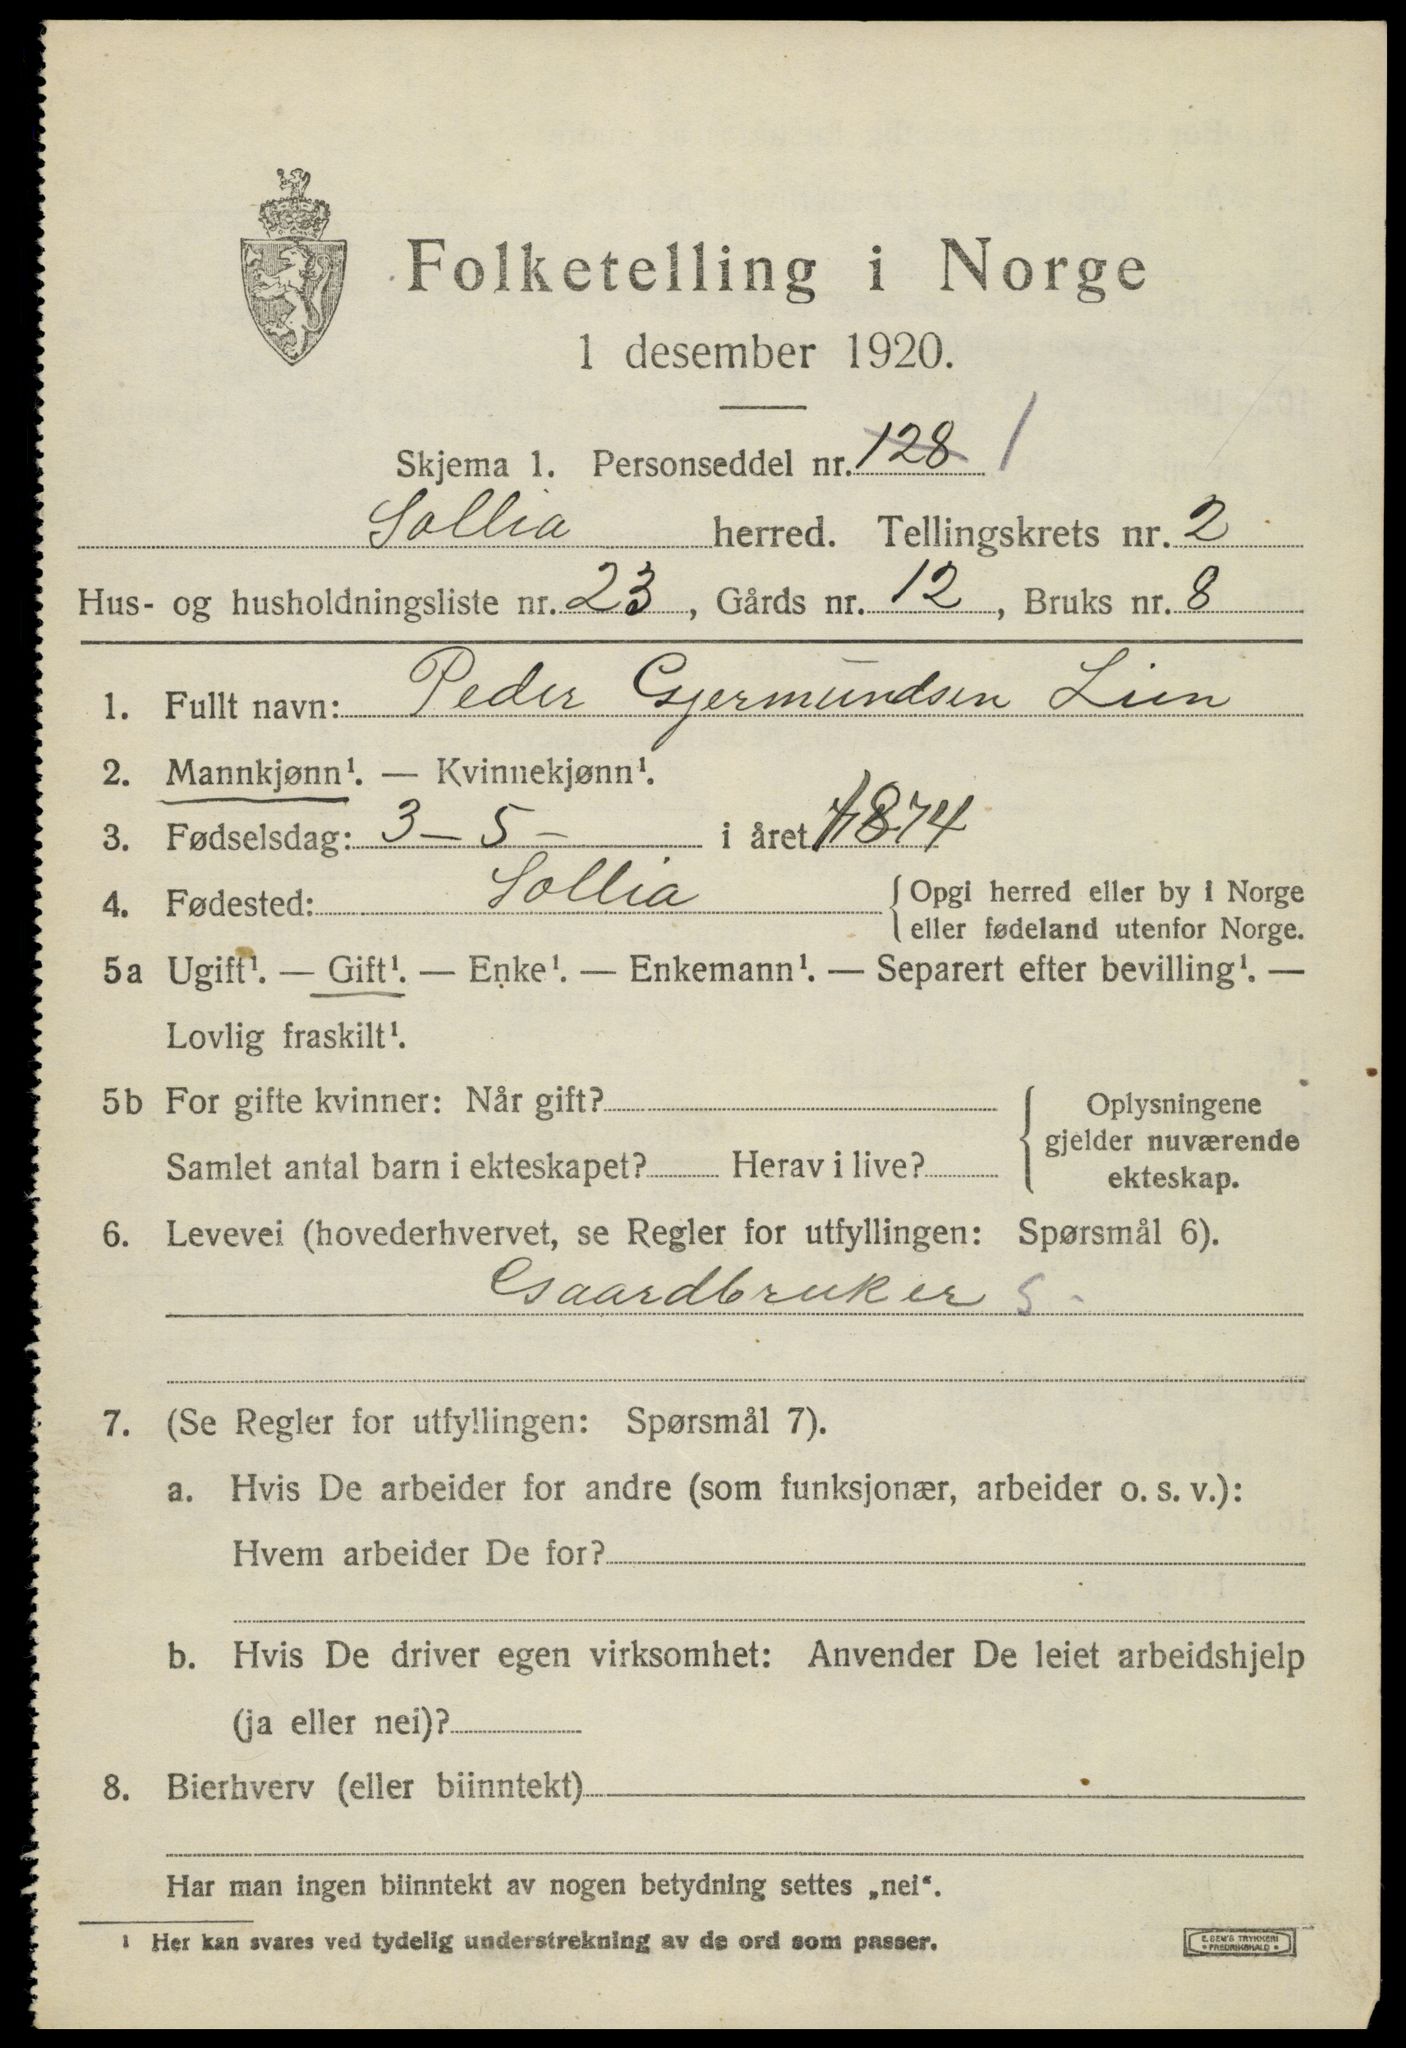 Folketelling i Norge
1 desember 1920.
Skjema 1. Personseddel nr. 128 1
Sollia herred. Tellingskrets nr. 2
Hus- og husholdningsliste nr. 23, Gårds nr. 12, Bruks nr. 8
1. Fullt navn: Peder Gjermundsen Lien
2. Mannkjønn¹. — Kvinnekjønn¹.
3. Fødselsdag: 3 – 5 – i året 1874
4. Fødested: Sollia { Opgi herred eller by i Norge
eller fødeland utenfor Norge.
5a Ugift¹. — Gift¹. — Enke¹. — Enkemann¹. — Separert efter bevilling¹. —
Lovlig fraskilt¹.
5b For gifte kvinner: Når gift?
Samlet antal barn i ekteskapet? Herav i live?
{ Oplysningene
gjelder nuværende
ekteskap.
6. Levevei (hovederhvervet, se Regler for utfyllingen: Spørsmål 6).
Gaardbruker S -
7. (Se Regler for utfyllingen: Spørsmål 7).
a. Hvis De arbeider for andre (som funksjonær, arbeider o. s. v.):
Hvem arbeider De for?
b. Hvis De driver egen virksomhet: Anvender De leiet arbeidshjelp
(ja eller nei)?
8. Bierhverv (eller biinntekt)
Har man ingen biinntekt av nogen betydning settes „nei“.
1 Her kan svares ved tydelig understrekning av de ord som passer.
E. SEM'S TRYKKERI
* FREDRIKSHALD *